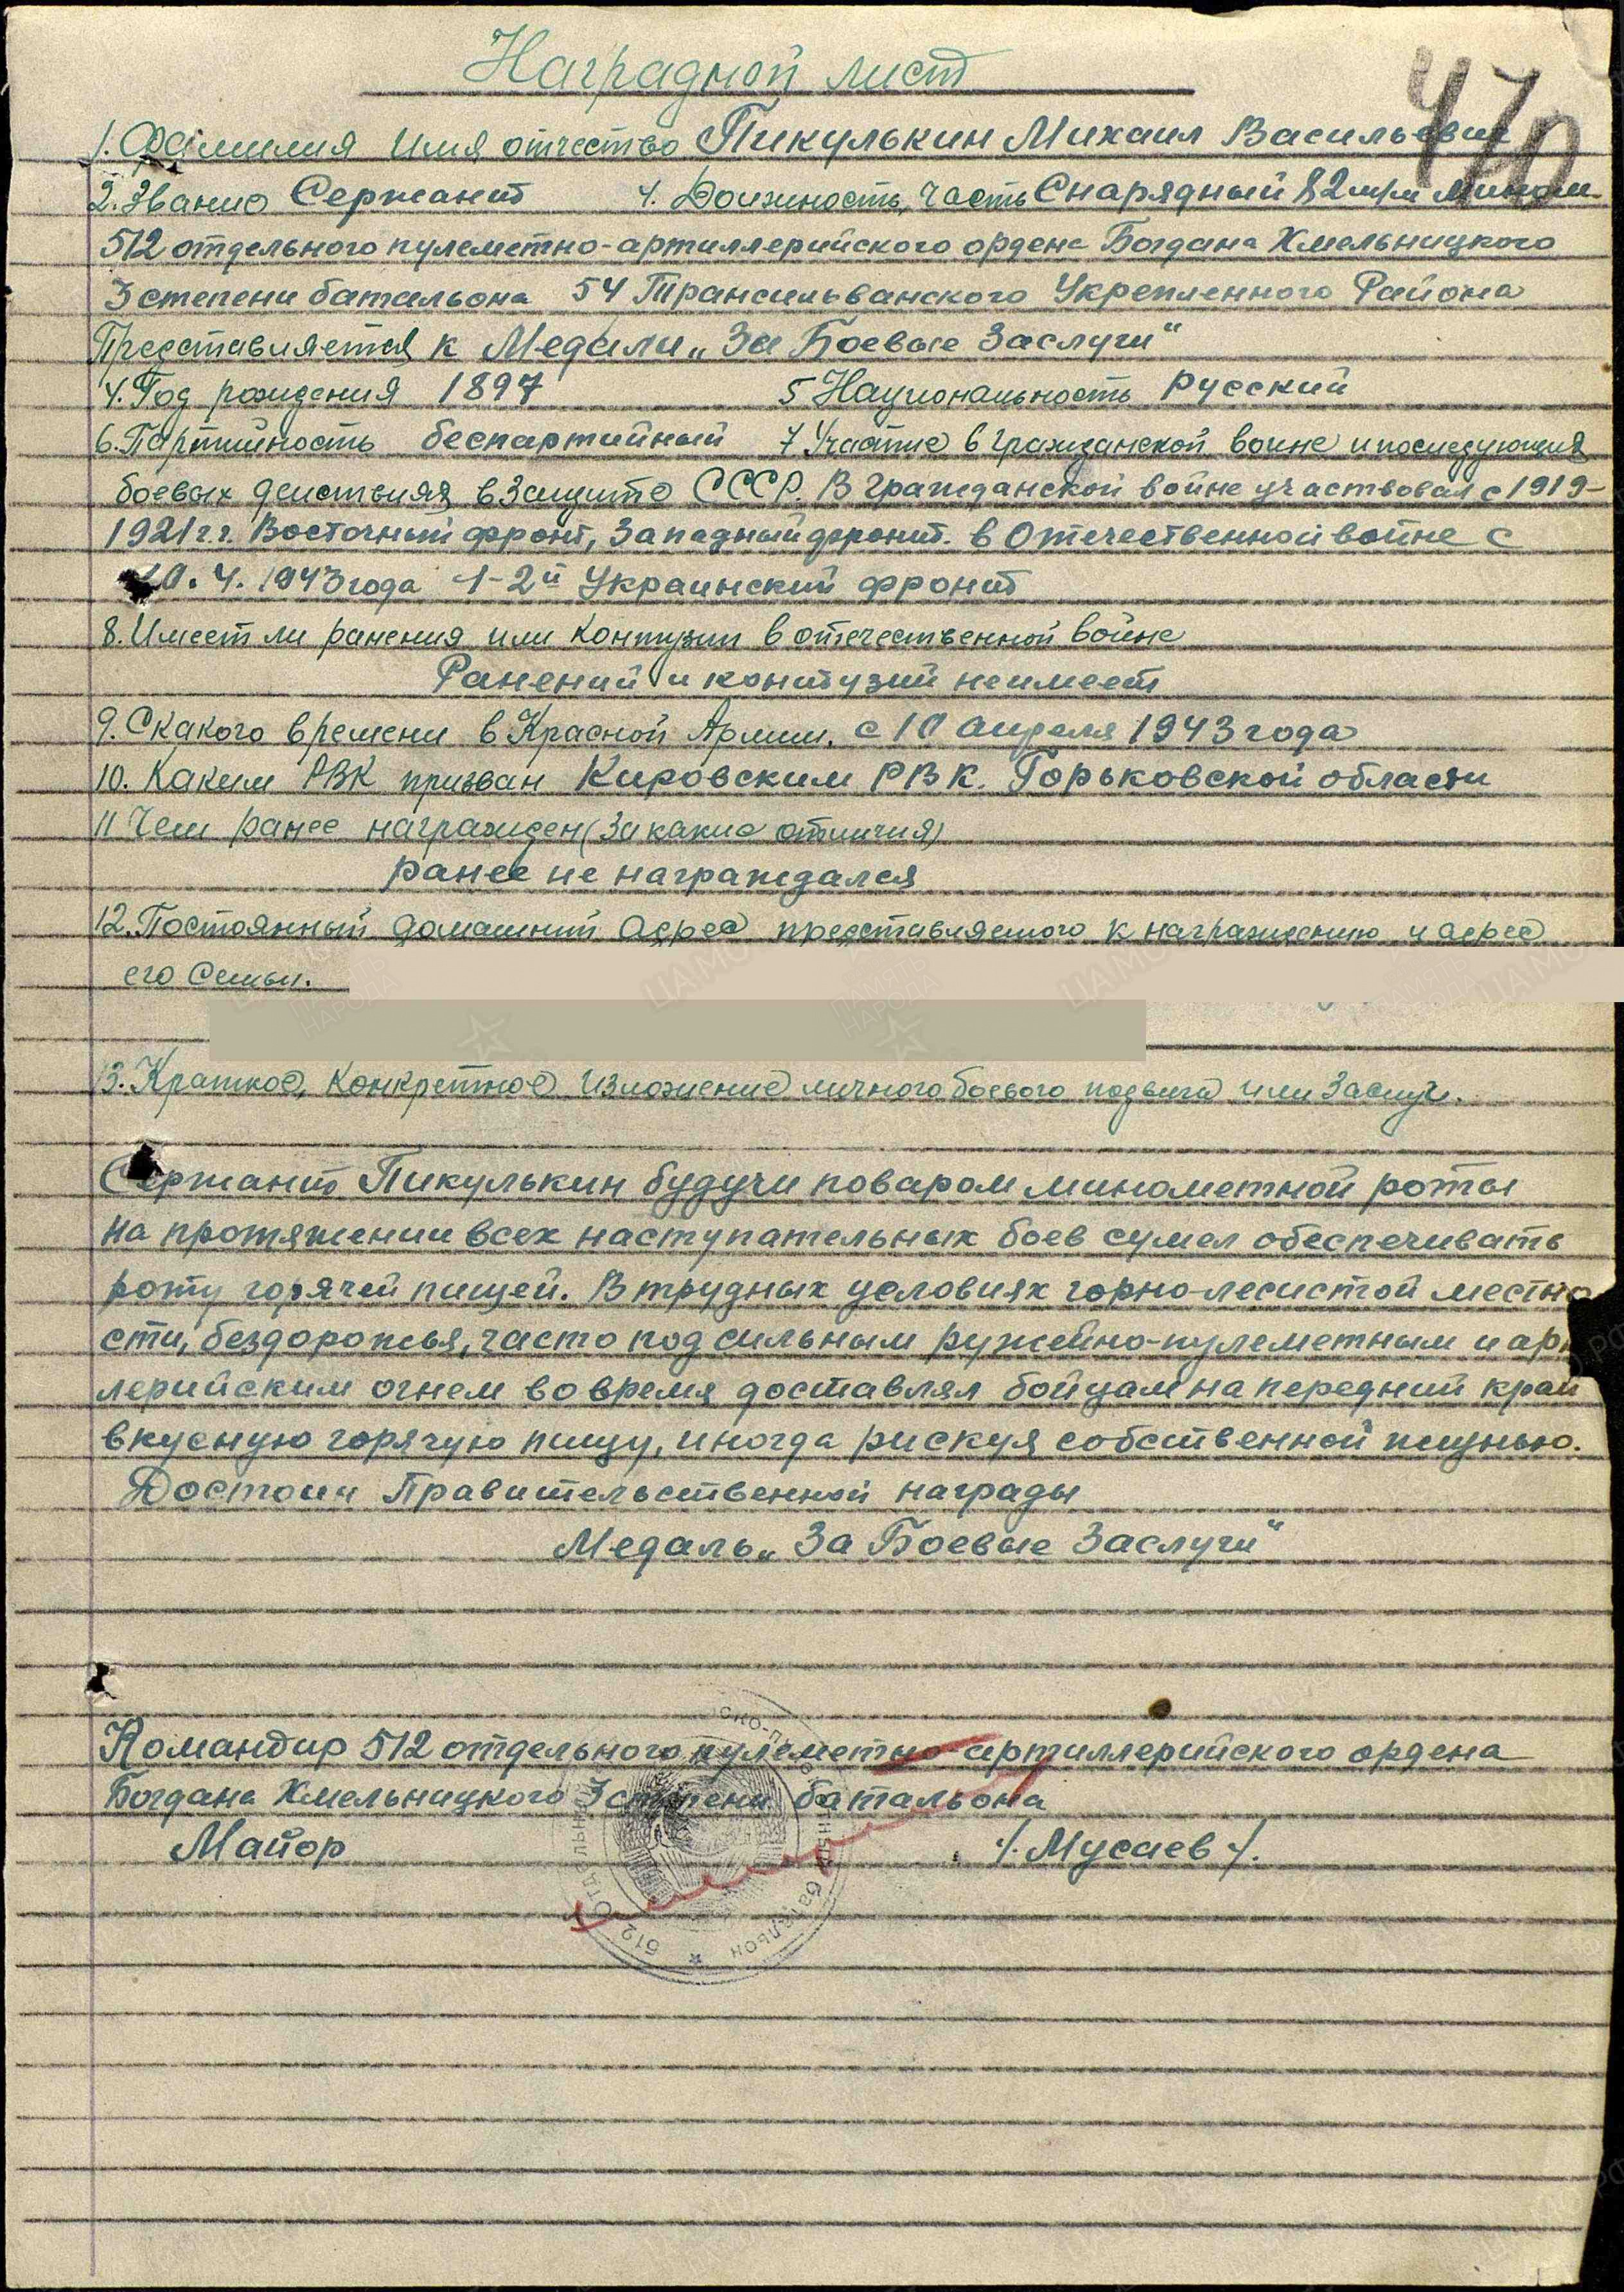 Наградной лист
470
1. Фамилия Имя отчество Пикулькин Михаил Васильевич
2. Звание Сержант 4. Должность, часть Снарядный 82 м/м мином.
512 отдельного пулеметно-артиллерийского ордена Богдана Хмельницкого
3 степени батальона 54 Трансильванского Укрепленного Района
Представляется к Медали „За Боевые Заслуги“
4. Год рождения 1897 5 Национальность русский
6. Партийность беспартийный 7 Участие в гражданской войне и последующих
боевых действиях в защите СССР. В гражданской войне участвовал с 1919-
1921 г.г. Восточный фронт, Западный фронт. в Отечественной войне с
10. 4. 1943 года 1-2й Украинский фронт
8. Имеет ли ранения или контузии в отечественной войне
Ранений и контузий неимеет
9. С какого времени в Красной Армии. с 10 апреля 1943 года
10. Каким РВК призван Кировским РВК. Горьковской области
11 Чем ранее награжден (за какие отличия)
ранее не награждался
12. Постоянный домашний адрес представляемого к награждению и адрес
его семьи.
13. Краткое, конкретное изложение личного боевого подвига или заслуг.
Сержант Пикулькин будучи поваром минометной роты
на протяжении всех наступательных боев сумел обеспечивать
роту горячей пищей. В трудных условиях горно-лесистой местно
сти, бездорожья, часто под сильным ружейно-пулеметным и арт
лерийским огнем во время доставлял бойцам на передний край
вкусную горячую пищу, иногда рискуя собственной жизнью.
Достоин Правительственной награды
Медаль „За Боевые Заслуги“
Командир 512 отдельного пулеметно-артиллерийского ордена
Богдана Хмельницкого 3 степени батальона
Майор /. Мусаев /.